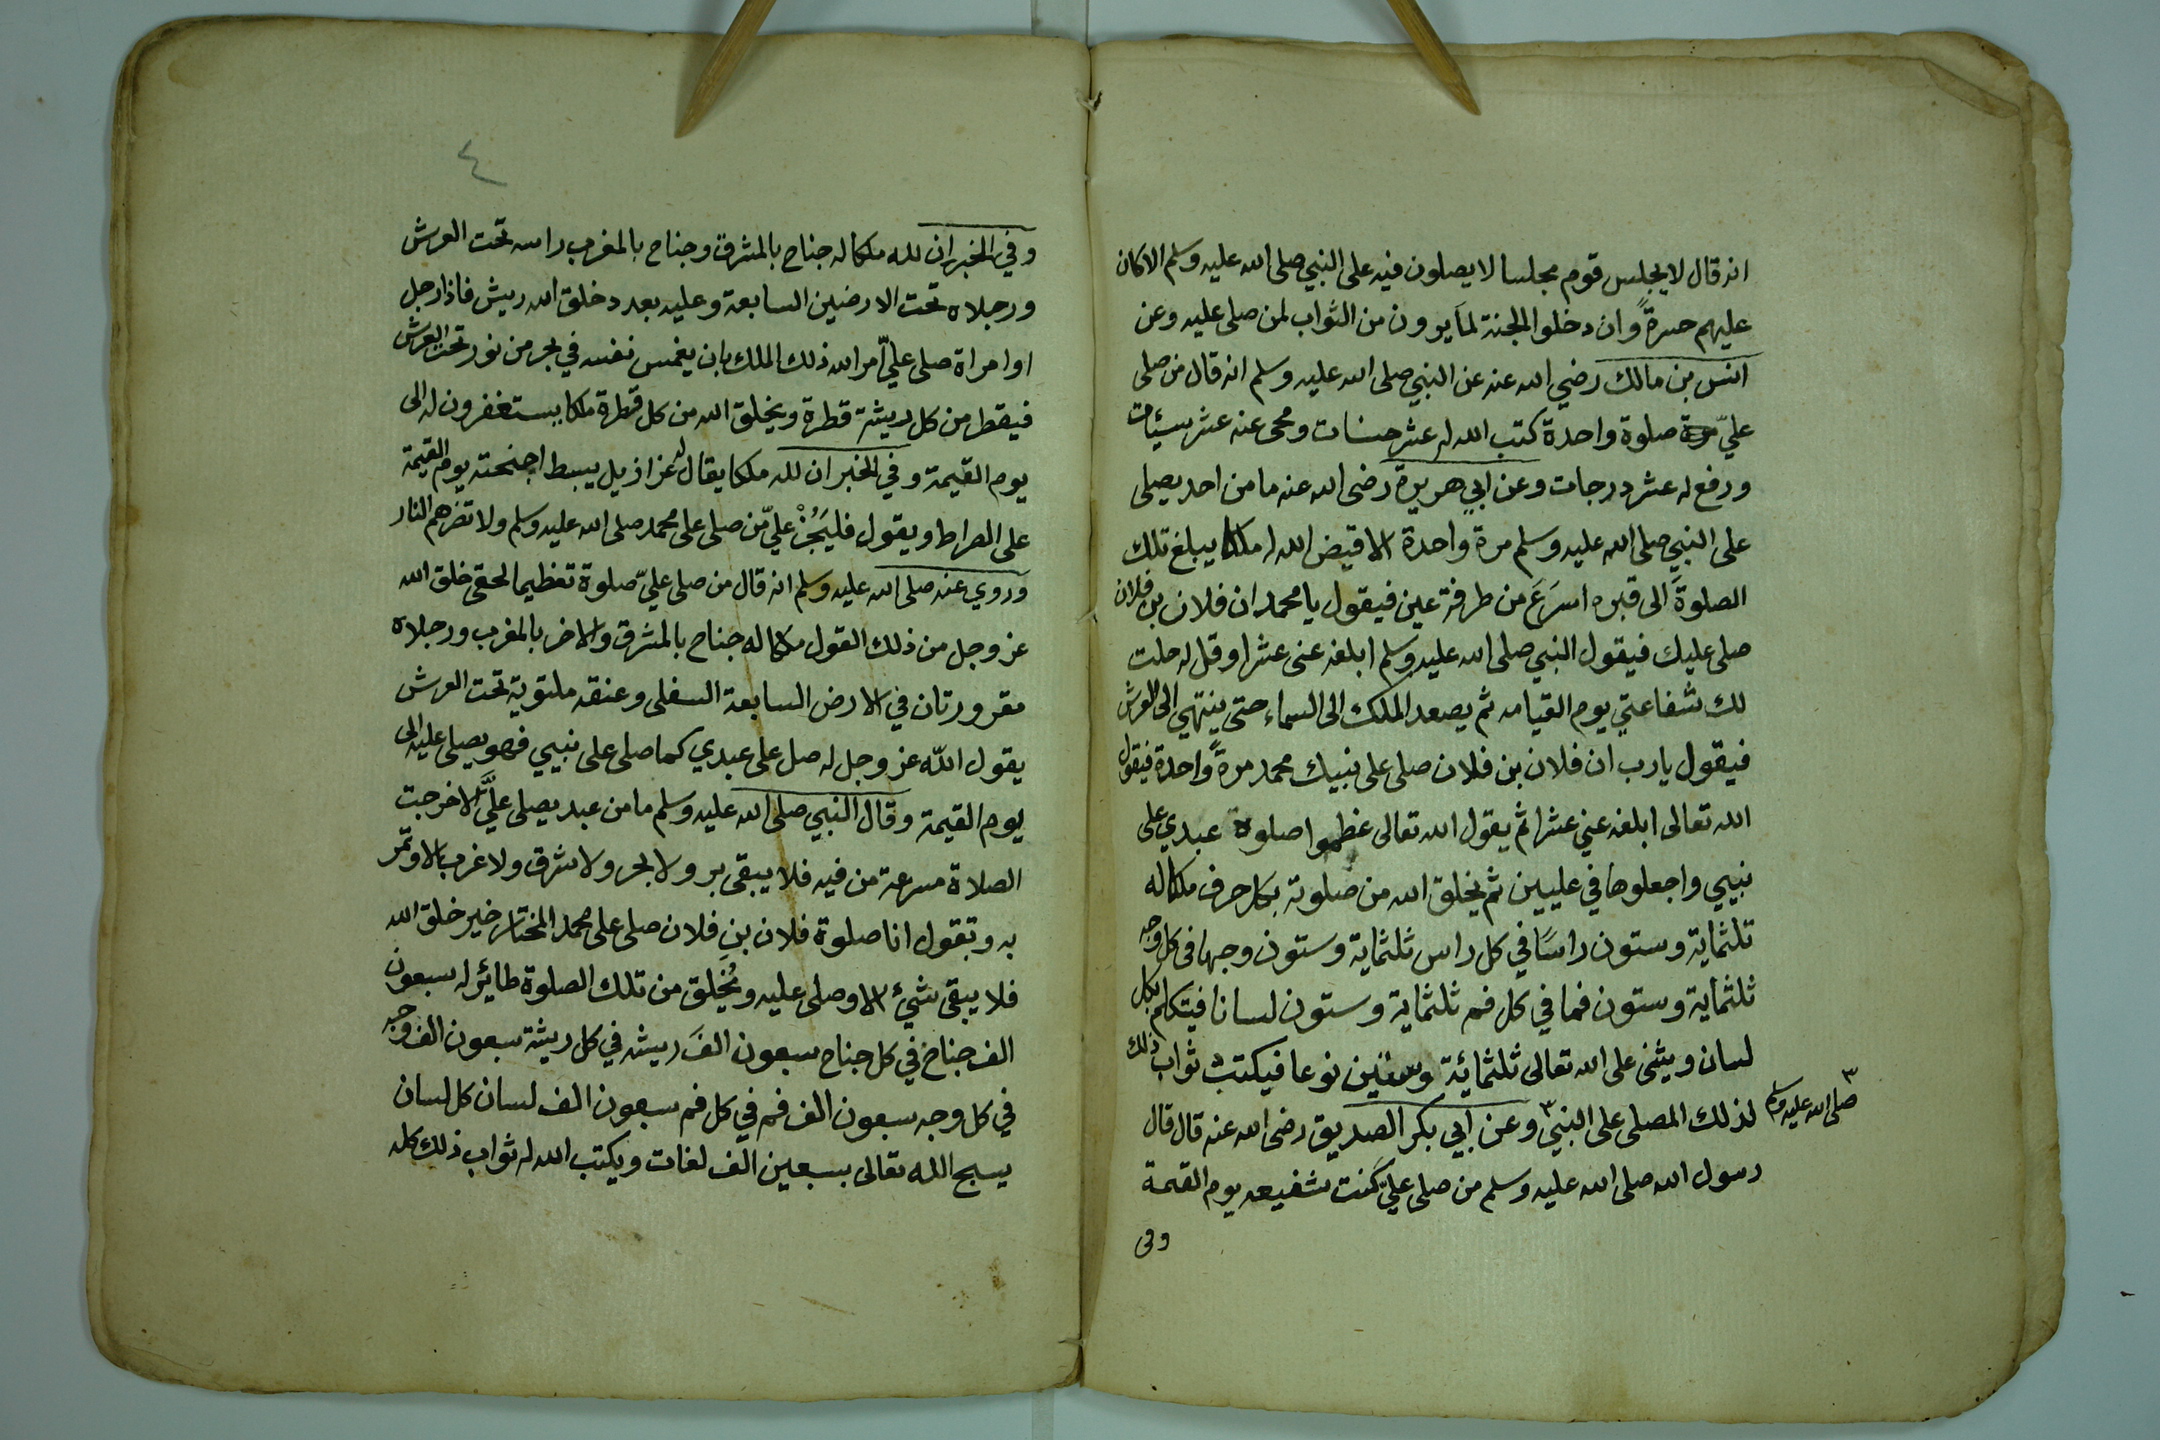 انه قال لا يجلس قوم مجلسا لا يصلون فيه على النبي صلى الله عليه وسلم الا كان
عليهم حسرةً وان دخلوا الجنة لما يرون من الثواب لمن صلى عليه وعن
انس بن مالك رضي الله عنه عن النبي صلى الله عليه وسلم انه قال من صلى
عليّ صلوة واحدة كتب الله له عشر حسنات ومحى عنه عشر سيئات
ورفع له عشر درجات وعن ابي هريرة رضى الله عنه ما من احد يصلى
على النبي صلى الله عليه وسلم مرة واحدة الا قيض الله له ملكا يبلغ تلك
الصلوةَ الى قبره اسرَعَ من طرفة عين فيقول يا محمد ان فلان بن فلان
صلى عليك فيقول النبي صلى الله عليه وسلم ابلغه عنى عشرا وقل له حلت
لك شفاعتي يوم القيامه ثم يصعد الملك الى السماء حتى ينتهي الى العرش
فيقول يا رب ان فلان بن فلان صلى على نبيك محمد مرةً واحدة فيقول
الله تعالى ابلغه عني عشرا ثم يقول الله تعالى عظموا صلوة عبدي على
نبيي واجعلوها في عليين ثم يخلق الله من صلوته بكل حرف ملكا له
ثلثماية وستون راسًا في كل راس ثلثماية وستون وجها فى كل وجه
ثلثماية وستون فما في كل فم ثلثماية وستون لسانا فيتكلم بكل
لسان ويثنى على الله تعالى ثلثمائة وستين نوعا فيكتب ثواب ذلك
لذلك المصلى على النبي ٣ وعن ابي بكر الصديق رضى الله عنه قال قال
٣ صلى الله عليه وسلم
رسول الله صلى الله عليه وسلم من صلى عليّ كنت شفيعه يوم القيمة
وفى
٤
وفي الخبر ان لله ملكا له جناح بالمشرق وجناح بالمغرب راسه تحت العرش
ورجلاه تحت الارضين السابعة وعليه بعدد خلق الله ريش فاذا رجل
او امراة صلى عليّ امر الله ذلك الملك بان يغمس نفسه في بحر من نور تحت العرش
فيقطر من كل ريشة قطرة ويخلق الله من كل قطرة ملكا يستغفرون له الى
يوم القيمة وفي الخبر ان لله ملكا يقال له عزازيل يبسط اجنحته يوم القيمة
على الصراط ويقول فليَجُزْ عليّ من صلى على محمد صلى الله عليه وسلم ولا تضرهم النار
وروي عنه صلى الله عليه وسلم انه قال من صلى عليّ صلوة تعظيما لحقى خلق الله
عز وجل من ذلك القول ملكا له جناح بالمشرق والاخر بالمغرب ورجلاه
مقرورتان في الارض السابعة السفلى وعنقه ملتوية تحت العرش
يقول الله عز وجل له صل على عبدي كما صلى على نبيي فهو يصلى عليه الى
يوم القيمة وقال النبي صلى الله عليه وسلم ما من عبد يصلى عليَّ الا خرجت
الصلاة مسرعة من فيه فلا يبقى بر ولا بحر ولا شرق ولا غرب الا وتمر
به وتقول انا صلوة فلان بن فلان صلى على محمد المختار خير خلق الله
فلا يبقى شيء الا وصلى عليه ويُخلق من تلك الصلوة طائر له سبعون
الف جناح في كل جناح سبعون الفَ ريشه في كل ريشة سبعون الف وجه
في كل وجه سبعون الف فم في كل فم سبعون الف لسان كل لسان
يسبح الله تعالى بسبعين الف لغات ويكتب الله له ثواب ذلك كله